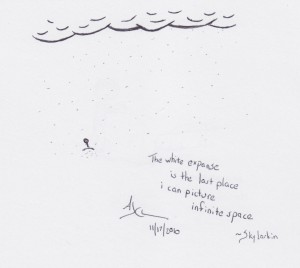 The white expanse
is the last place
i can picture
infinite space
11/17/2010
~Skylarkin